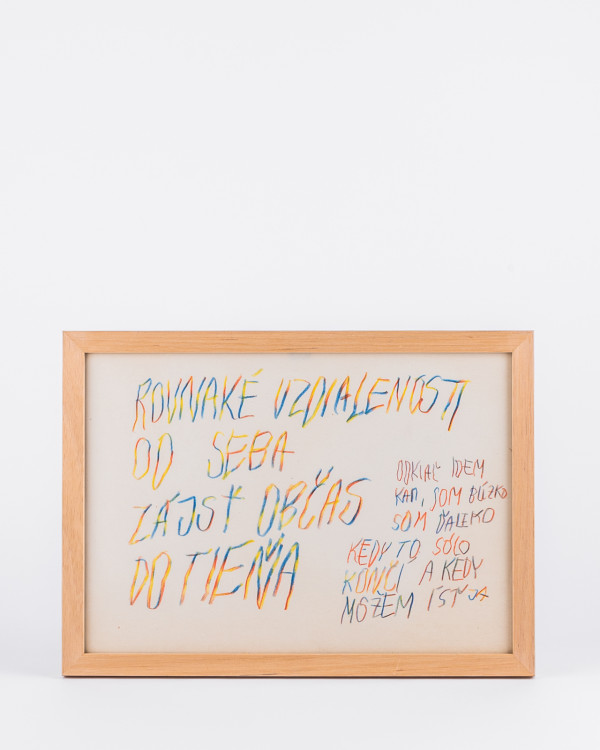 ROVNAKÉ VZDIALENOSTI
OD SEBA
ZÁJSŤ OBČAS
DO TIEŇA
ODKIAĽ IDEM
KAM, SOM BLÍZKO
SOM ĎALEKO
KEDY TO SÓLO
KONČÍ A KEDY
MÔŽEM ÍSŤ JA